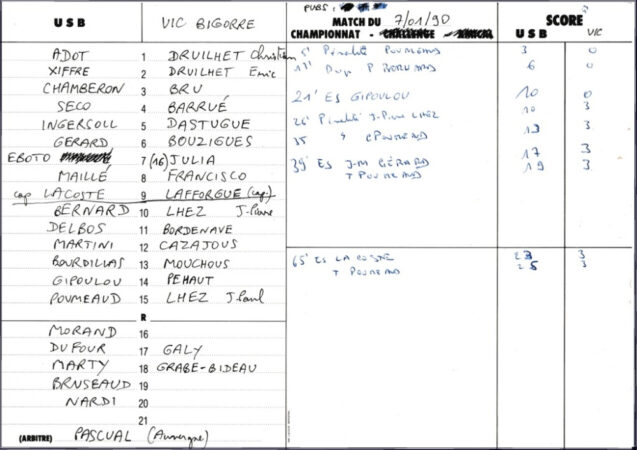 USB VIC BIGORRE
PUBS :
MATCH DU 7/01/90
CHAMPIONNAT -
SCORE
USB VIC
ADOT 1 DRUILHET Christian
XIFFRE 2 DRUILHET Eric
CHAMBERON 3 BRU
SECO 4 BARRUÉ
INGERSOLL 5 DASTUGUE
GERARD 6 BOUZIGUES
EBOTO 7 (16) JULIA
MAILLÉ 8 FRANCISCO
cap LACOSTE 9 LAFFORGUE (cap)
BÉRNARD 10 LHEZ J-Pierre
DELBOS 11 BORDENAVE
MARTINI 12 CAZAJOUS
BOURDILLAS 13 MOUCHOUS
GIPOULOU 14 PEHAUT
POUMEAUD 15 LHEZ J-Paul
R
MORAND 16
DUFOUR 17 GALY
MARTY 18 GRABE-BIDEAU
BRUSEAUD 19
NARDI 20
21
(ARBITRE) PASCUAL (Auvergne)
5' Pénalité POUMEAUD 3 0
Drop P BERNARD 6 0
21' ES GIPOULOU 10 0
26' Pénalité J-Pierre LHEZ 10 3
35 " POUMEAUD 13 3
39' ES J-M GÉRARD 17 3
T POUMEAUD 19 3
65' ES LACOSTE 23 3
T POUMEAUD 25 3